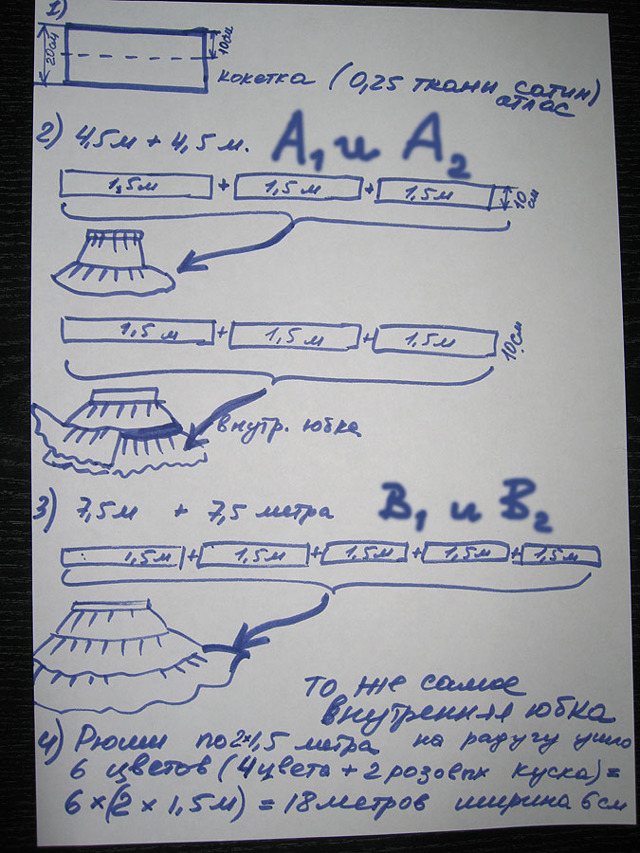 1)
20см
10см
кокетка (0,25 ткани сатин)
атлас
2) 4,5м + 4,5 м. А1 и А2
1,5м + 1,5 м + 1,5м
10 см
1,5 м + 1,5 м + 1,5м
10см
внутр. юбка
3) 7,5м + 7,5 метра В1 и В2
1,5м + 1,5м + 1,5м + 1,5м + 1,5м
то же самое
внутренняя юбка
4) Рюши по 2×1,5 метра на радугу ушло
6 цветов (4 цвета + 2 розовых куска) =
6×(2 × 1,5м) = 18 метров ширина 6 см